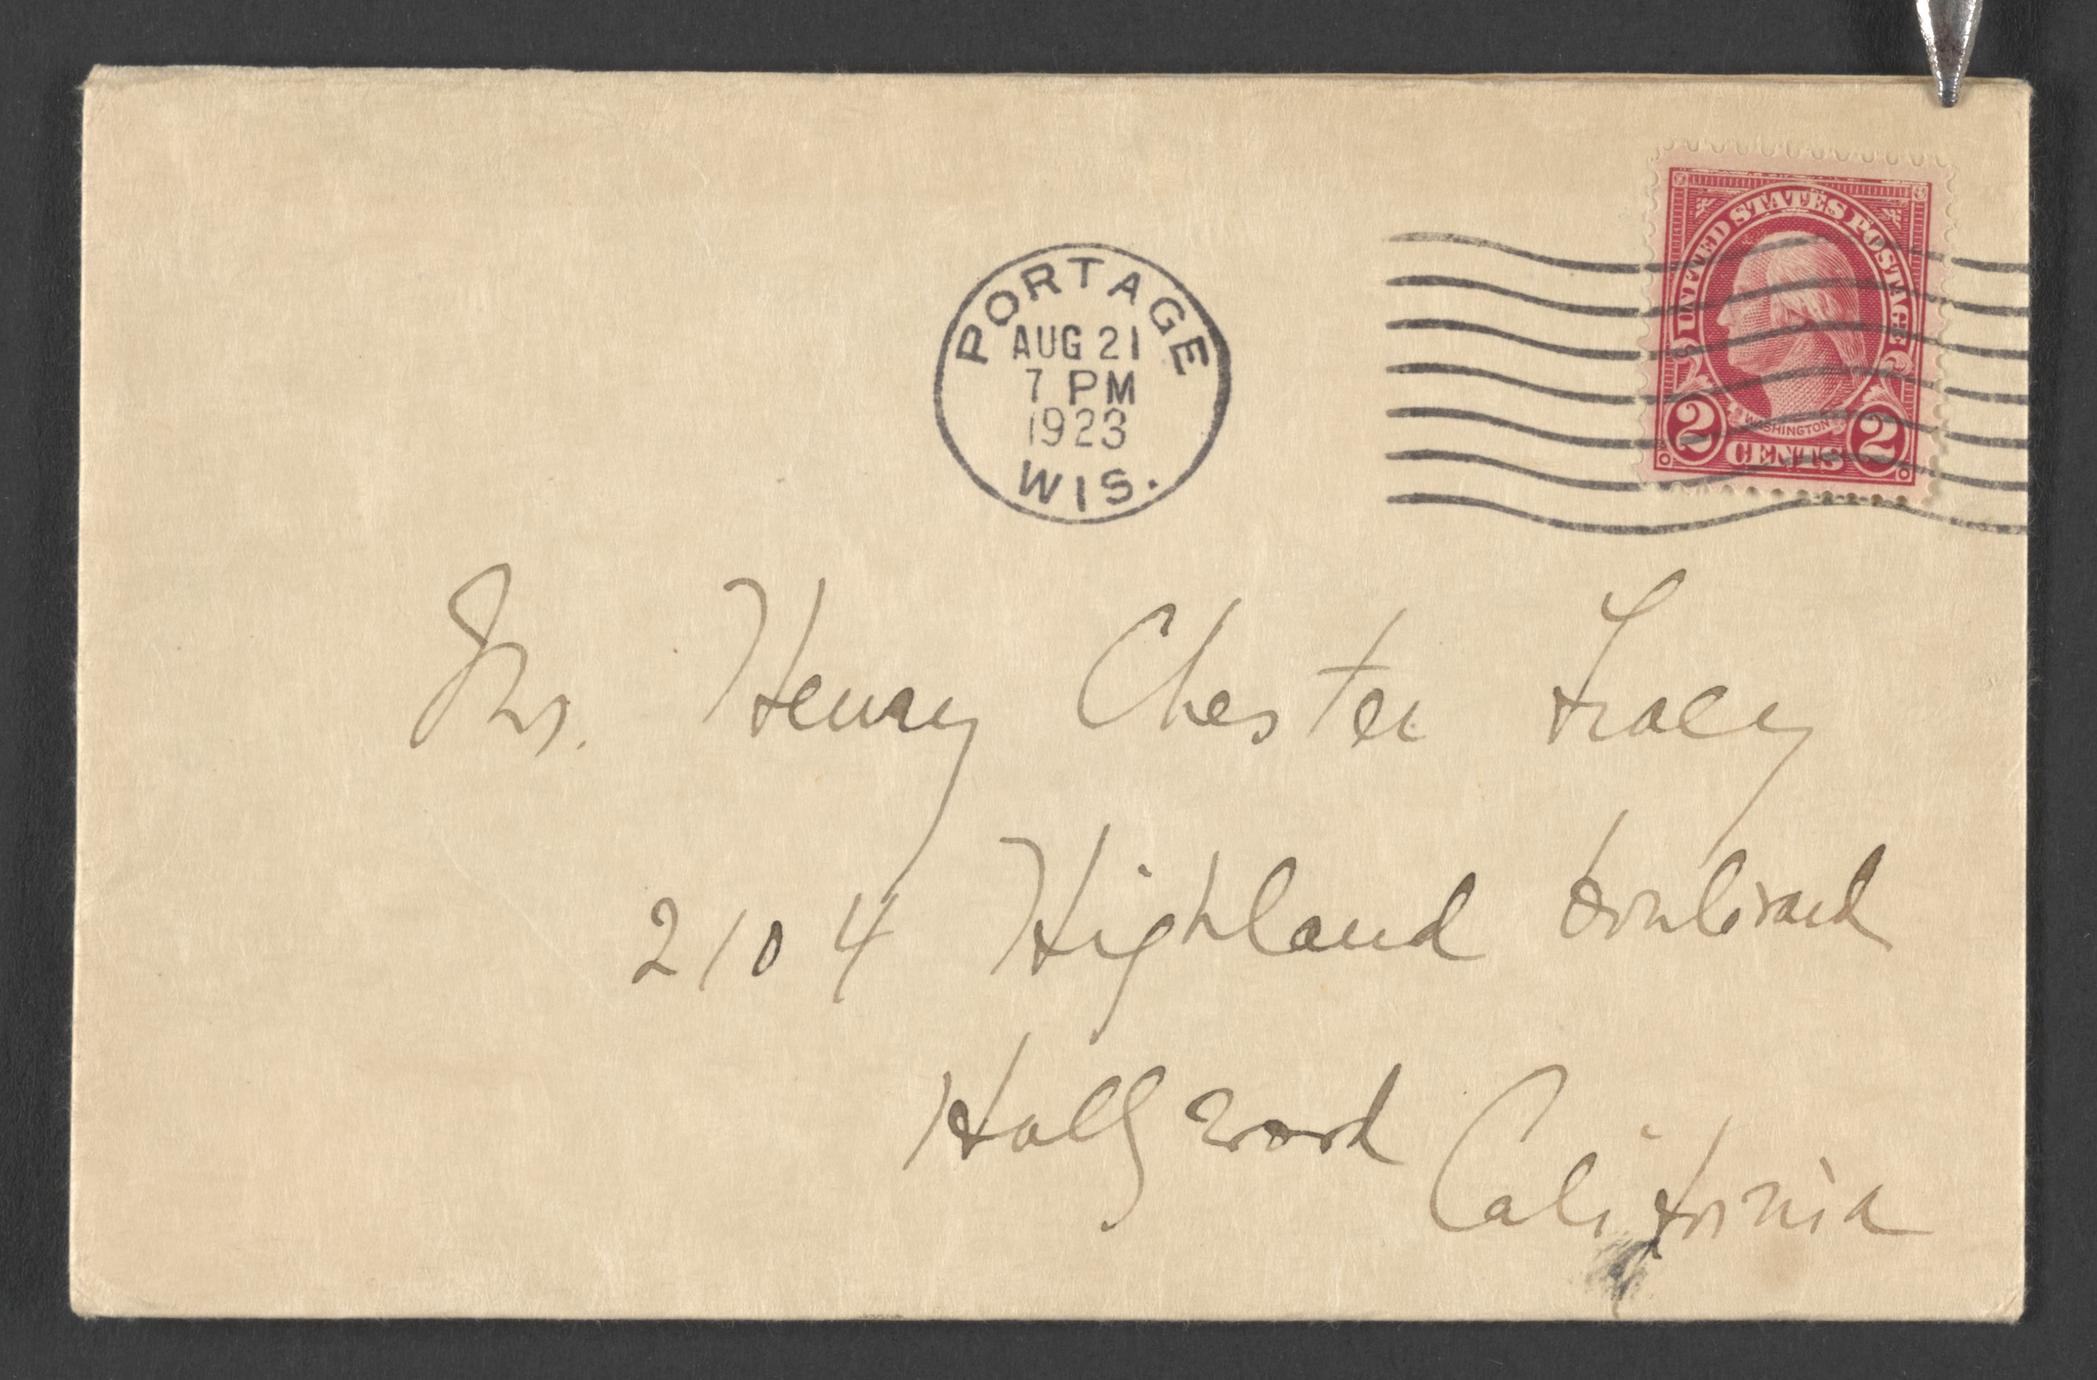 PORTAGE
AUG 21
7 PM
1923
WIS.
UNITED STATES POSTAGE
WASHINGTON
2 CENTS 2
Henry Chester Tracy
2104 Highland boulevard
Hollywood California